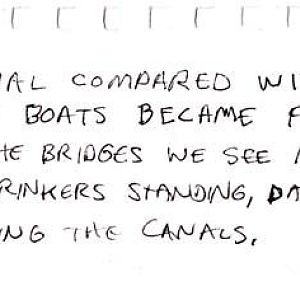 IAL COMPARED WI
BOATS BECAME F
HE BRIDGES WE SEE
RINKERS STANDING, DA
ING THE CANALS.